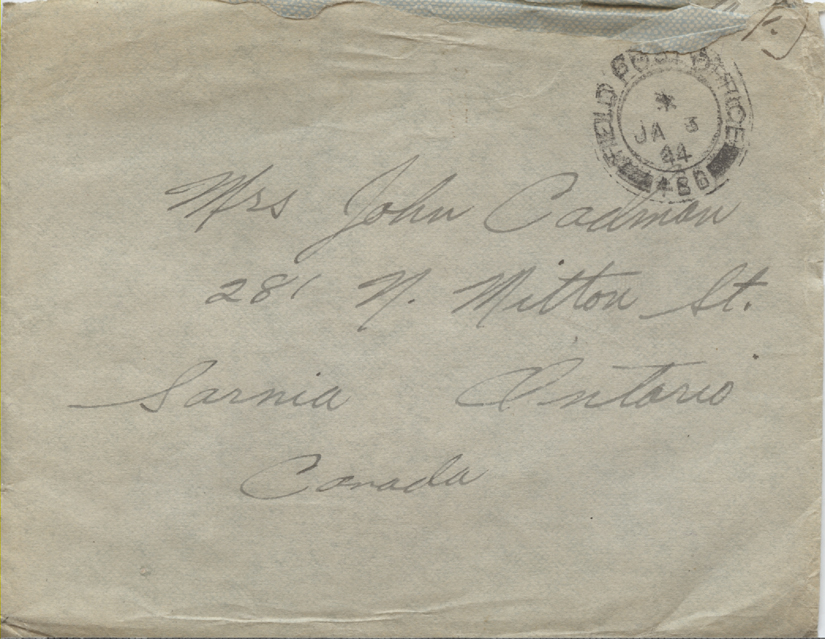 FIELD POST OFFICE
*
JA 3
44
Mrs John Cadman
281 N. Mitton St.
Sarnia Ontario
Canada